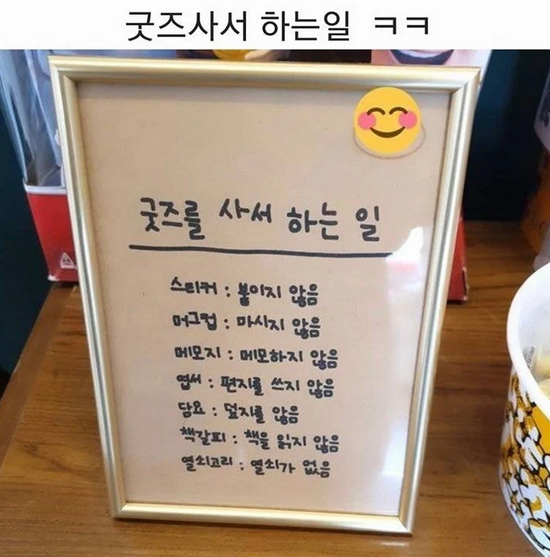 굿즈사서 하는일 ㅋㅋ
굿즈를 사서 하는 일
스티커 : 붙이지 않음
머그컵 : 마시지 않음
메모지 : 메모하지 않음
엽서 : 편지를 쓰지 않음
담요 : 덮지를 않음
책갈피 : 책을 읽지 않음
열쇠고리 : 열쇠가 없음